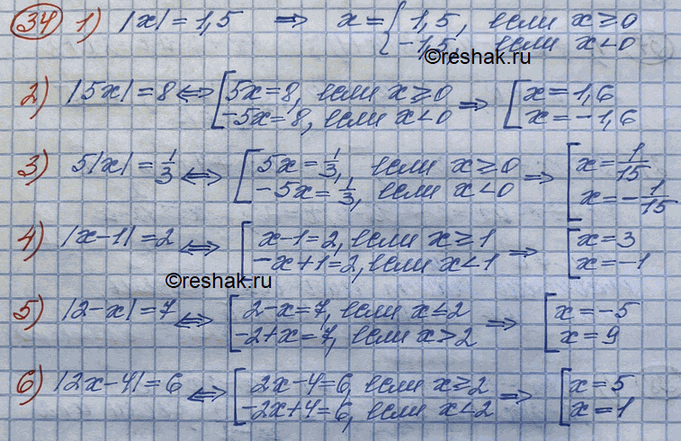 34 1) |x| = 1,5 ⇒ x = { 1,5, если x ≥ 0
-1,5, если x < 0
©reshak.ru
2) |5x| = 8 ⇔ [ 5x = 8, если x ≥ 0 ⇒ [ x = 1,6
-5x = 8, если x < 0 x = -1,6
3) 5|x| = 1/3 ⇔ [ 5x = 1/3, если x ≥ 0 ⇒ [ x = 1/15
-5x = 1/3, если x < 0 x = -1/15
4) |x-1| = 2 ⇔ [ x-1 = 2, если x ≥ 1 ⇒ [ x = 3
-x+1 = 2, если x < 1 x = -1
©reshak.ru
5) |2-x| = 7 ⇔ [ 2-x = 7, если x ≤ 2 ⇒ [ x = -5
-2+x = 7, если x > 2 x = 9
6) |2x-4| = 6 ⇔ [ 2x-4 = 6, если x ≥ 2 ⇒ [ x = 5
-2x+4 = 6, если x < 2 x = 1